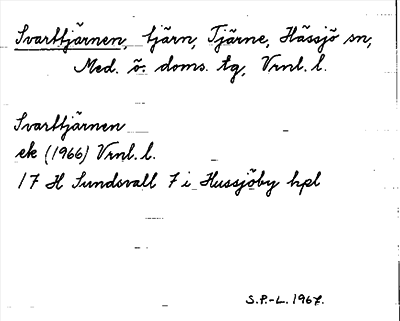 Svarttjärnen, tjärn, Tjärne, Hässjö sn,
Med. ö. doms. tg, Vrnl. l.
Svarttjärnen
ek (1966) Vrnl. l.
17 H Sundsvall 7 i Hussjöby hpl
S.P.-L. 1967.